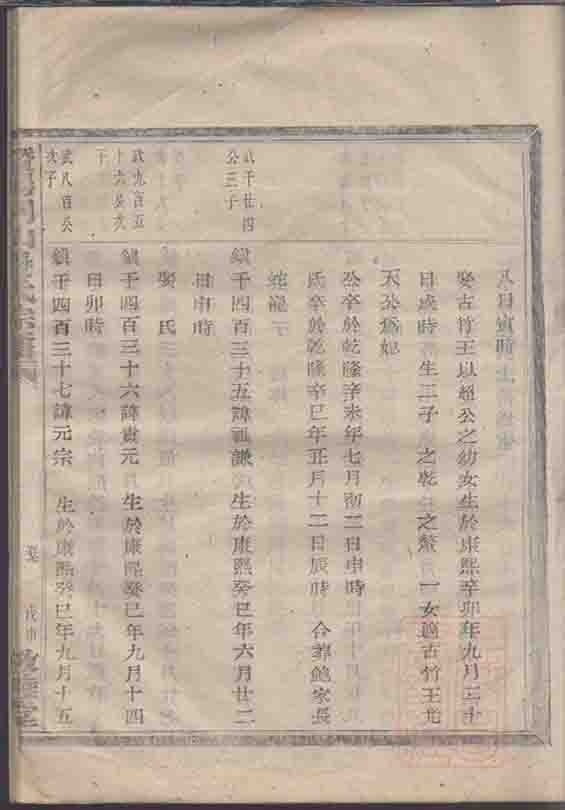 八日寅時
娶古竹王以超公之幼女生於康熙辛卯年九月三十
日戌時生三子 之乾 之 一女適古竹王
天公為妃
公卒於乾隆辛未年七月初三日申時
氏卒於乾隆辛巳年正月十二日辰時 合葬鮑家長
蛇龍子
武千廿四
公三子
鎮千四百三十五諱祖謙 生於康熙癸巳年六月廿二
日申時
娶 氏
武九百五
十六公次
子
鎮千四百三十六諱貴元 生於康熙癸巳年九月十四
日卯時
武八百
次子
鎮千四百三十七諱元宗 生於康熙癸巳年九月十五
戊申